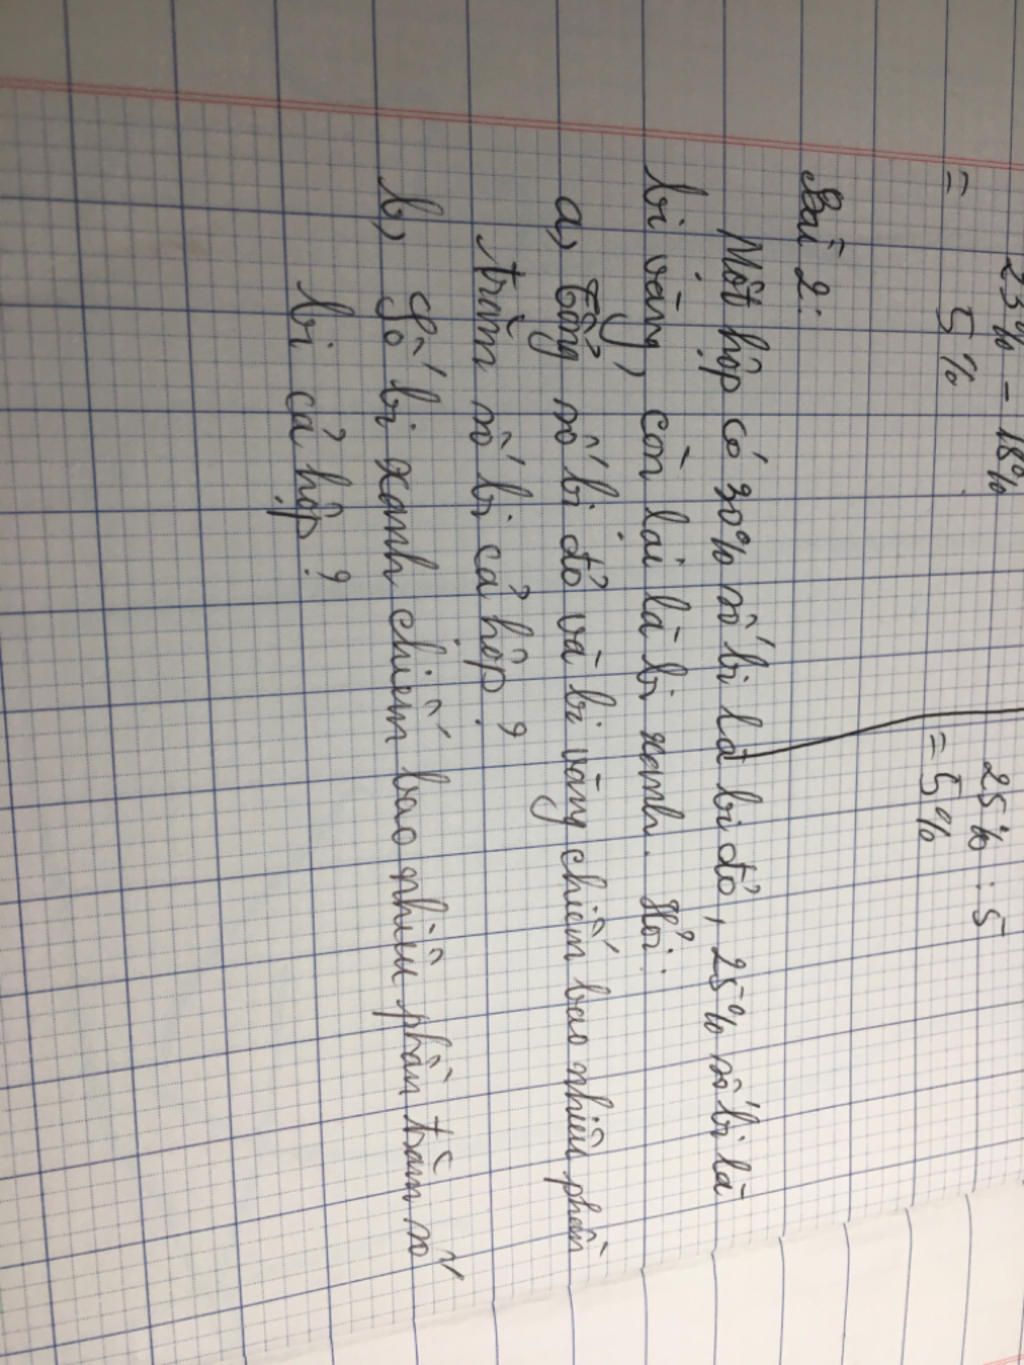 23% - 18%
= 5%
25% : 5
= 5%
Bài 2:
Một hộp có 30% số bi là bi đỏ, 25% số bi là
bi vàng, còn lại là bi xanh. Hỏi:
a, Tổng số bi đỏ và bi vàng chiếm bao nhiêu phần
trăm số bi cả hộp?
b, Số bi xanh chiếm bao nhiêu phần trăm số
bi cả hộp?